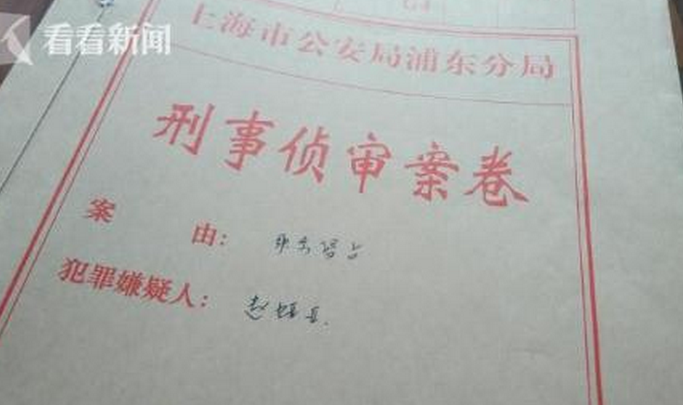 看看新闻
上海市公安局浦东分局
刑事侦审案卷
案 由：
犯罪嫌疑人：赵